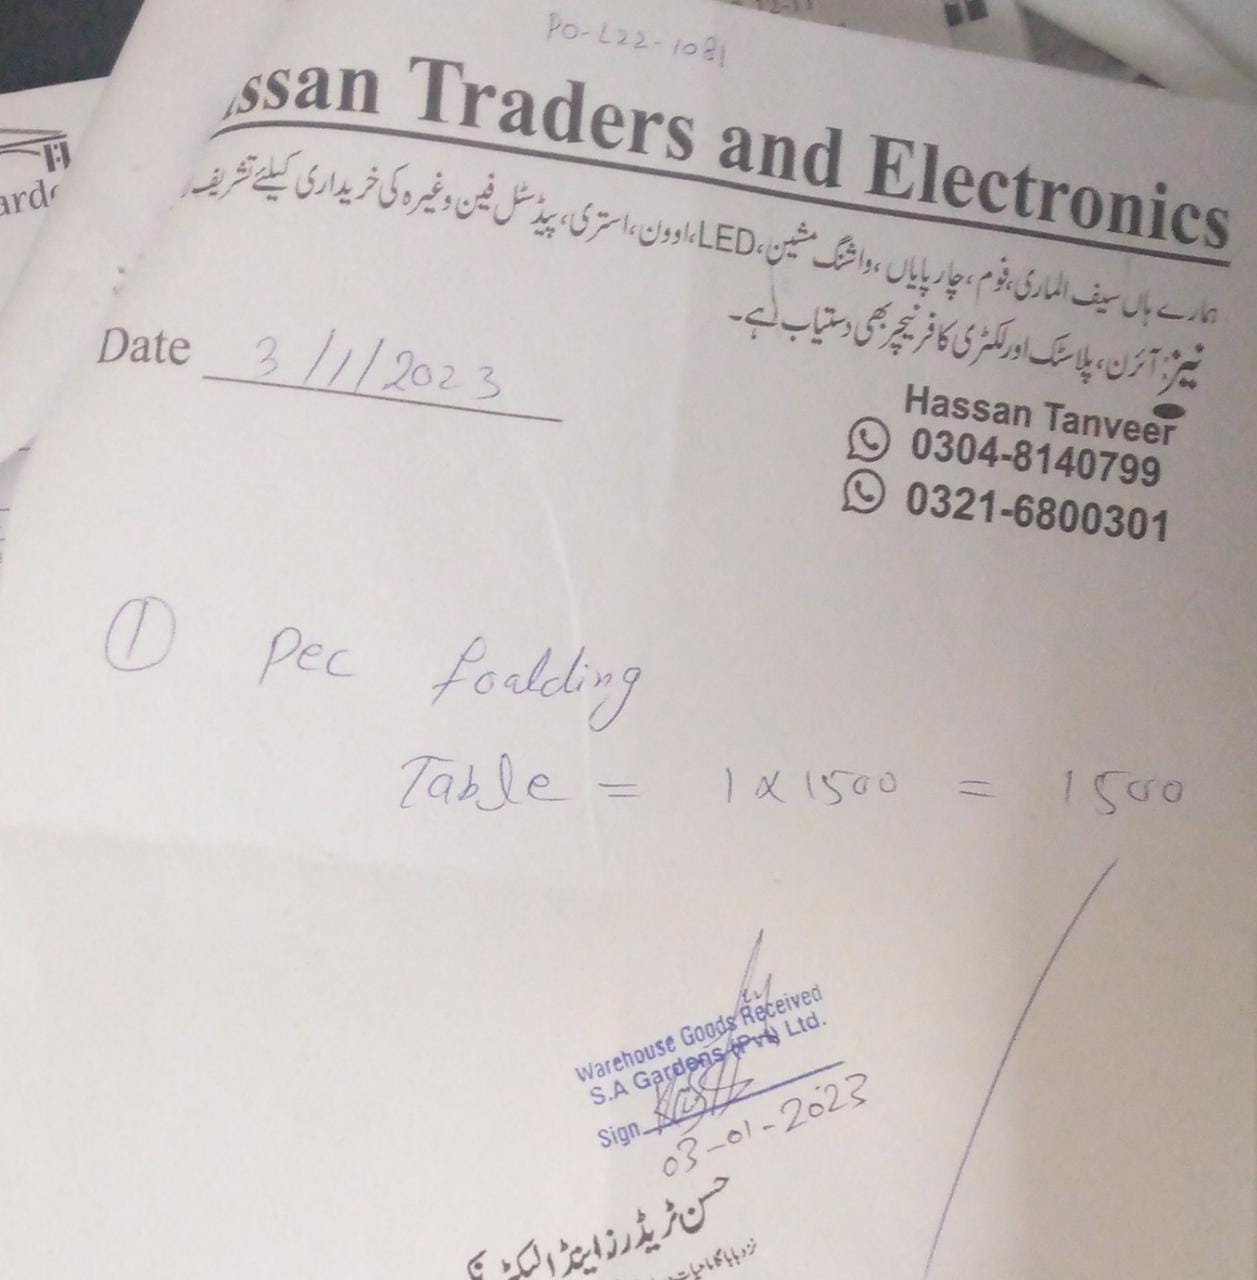 PO-L22-1081
ssan Traders and Electronics
ہمارے ہاں سیف الماری، فوم، چارپایاں، واشنگ مشین، LED، اوون، استری، پیڈسٹل فین وغیرہ کی خریداری کیلئے تشریف
نیز: آئرن، پلاسٹک اور لکڑی کا فرنیچر بھی دستیاب ہے۔
Date 3/1/2023
Hassan Tanveer
0304-8140799
0321-6800301
① Pec foalding
Table = 1 x 1500 = 1500
Warehouse Goods Received
S.A Gardens (Pvt) Ltd.
Sign
03-01-2023
حسن ٹریڈرز اینڈ الیکٹرونکس